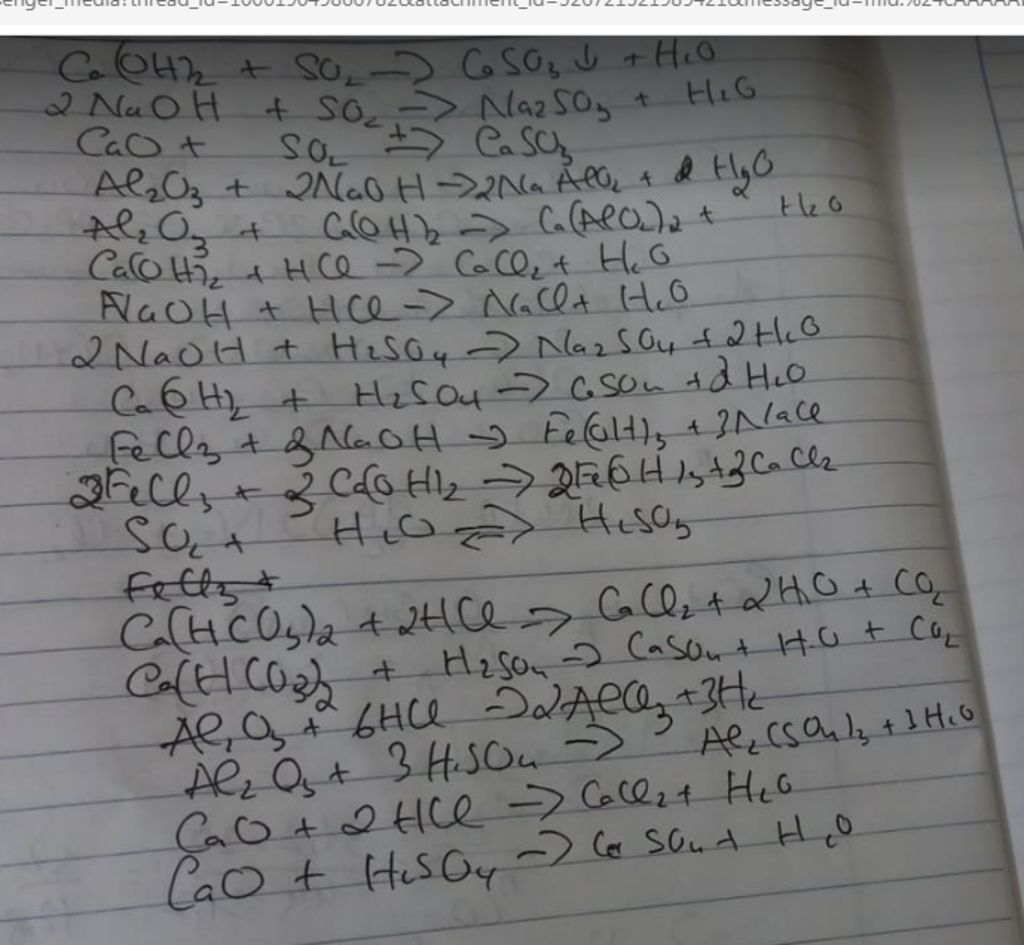 enger_media?thread_id=100019049866782&attachment_id=526721521985421&message_id=mid.%24cAAAAA
Ca(OH)2 + SO2 -> CaSO3 ↓ + H2O
2NaOH + SO2 -> Na2SO3 + H2O
CaO + SO2 => CaSO3
Al2O3 + 2NaOH -> 2NaAlO2 + H2O
Al2O3 + Ca(OH)2 -> Ca(AlO2)2 + H2O
Ca(OH)2 + HCl -> CaCl2 + H2O
NaOH + HCl -> NaCl + H2O
2NaOH + H2SO4 -> Na2SO4 + 2H2O
Ca(OH)2 + H2SO4 -> CaSO4 + 2H2O
FeCl3 + 3NaOH -> Fe(OH)3 + 3NaCl
2FeCl3 + 3Ca(OH)2 -> 2Fe(OH)3 + 3CaCl2
SO2 + H2O ⇌ H2SO3
FeCl3 +
Ca(HCO3)2 + 2HCl -> CaCl2 + 2H2O + CO2
Ca(HCO3)2 + H2SO4 -> CaSO4 + H2O + CO2
Al2O3 + 6HCl -> 2AlCl3 + 3H2
Al2O3 + 3H2SO4 -> Al2(SO4)3 + 3H2O
CaO + 2HCl -> CaCl2 + H2O
CaO + H2SO4 -> CaSO4 + H2O